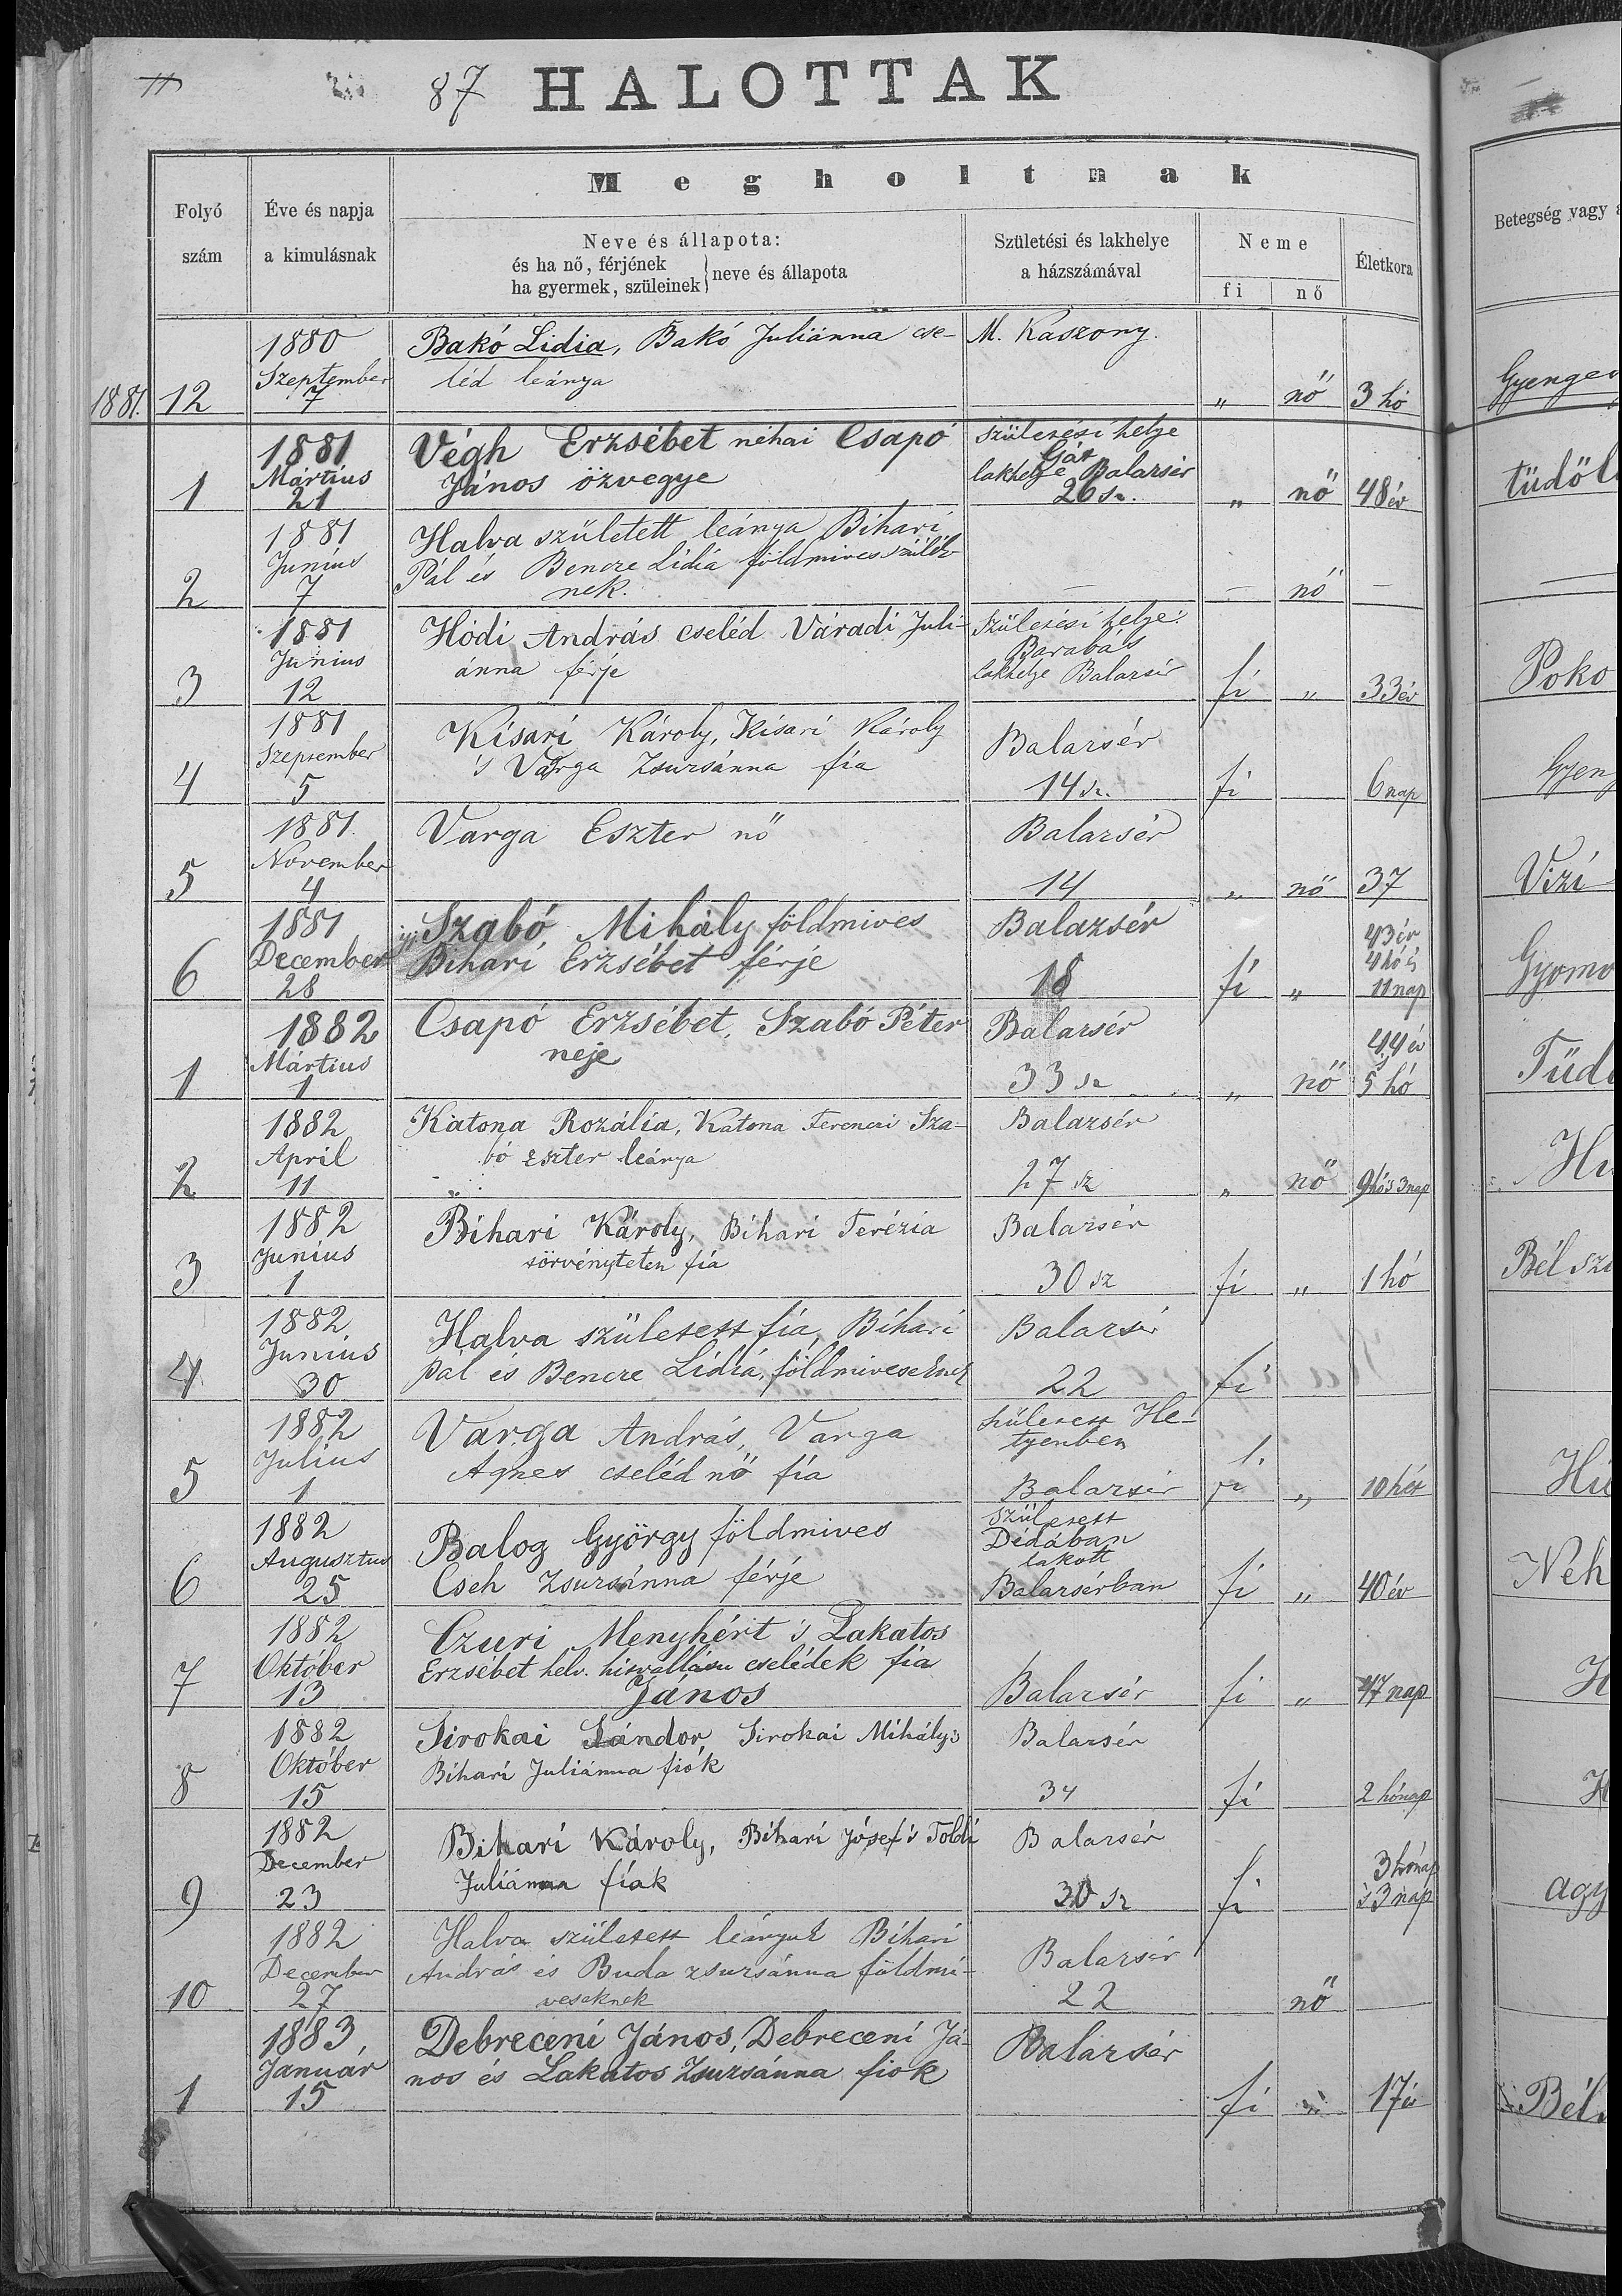 87 HALOTTAK
Megholtnak
Folyó szám
Éve és napja a kimulásnak
Neve és állapota:
és ha nő, férjének
ha gyermek, szüleinek
neve és állapota
Születési és lakhelye
a házszámával
Neme
fi nő
Életkora
Betegség vagy
1880 Bakó Lidia, Bakó Juliánna cse- M. Kaszony.
Szeptember léd leánya
1881. 12 7 „ nő 3 hó
Gyenge
1881 Végh Erzsébet néhai Csapó születési helye
Gát
Mártius János özvegye lakhelye Balazsér
1 21 26 sz. „ nő 48 év
tüdől
1881 Halva született leánya Bihari
Junius Pál és Bencze Lidia földmives szülék-
2 7 nek. — — nő —
1881 Hódi András cseléd Váradi Juli- Születési helye:
Barabás
Junius ánna férje lakhelye Balazsér
3 12 fi „ 33 év
Poko
1881 Kisari Károly, Kisari Károly Balazsér
Szeptember 's Varga Zsuzsánna fia
4 5 14 sz. fi 6 nap
Gyen
1881. Varga Eszter nő Balazsér
November
5 4 14 „ nő 37
Vizi
1881 ifj. Szabó Mihály földmives Balazsér 43 év
December Bihari Erzsébet férje 4 hó s
6 28 18 fi „ 11 nap
Gyomo
1882 Csapó Erzsébet, Szabó Péter Balazsér 44 év
Mártius neje s
1 1 33 sz „ nő 5 hó
Tüdő
1882 Katona Rozália, Katona Ferencz i Sza- Balazsér
April bó Eszter leánya
2 11 27 sz „ nő 9 hó s 3 nap
Hu
1882 Bihari Károly, Bihari Terézia Balazsér
Junius törvénytelen fia
3 1 30 sz fi „ 1 hó
Bél sz
1882 Halva született fia, Bihari Balazsér
Junius Pál és Bencze Lidiá, földmiveseknek
4 30 22 fi
1882 Varga András, Varga született He-
tyenben
Julius Agnes cseléd nő fia
5 1 Balazsér fi „ 10 hét
Hu
1882 Balog György földmives Született
Dédában
Augusztus lakott
6 25 Cseh Zsuzsánna férje Balazsérban fi „ 40 év
Neh
1882 Czuri Menyhért 's Lakatos
Október Erzsébet helv. hitvallásu cselédek fia
7 13 János Balazsér fi „ 47 nap
H
1882 Sirokai Sándor, Sirokai Mihály s Balazsér
Október Bihari Juliánna fiók
8 15 34 fi 2 hónap
H
1882 Bihari Károly, Bihari József 's Toldi Balazsér
December Juliánna fiak 3 hónap
9 23 30 sz fi 's 3 nap
agy
1882 Halva született leányuk Bihari Balazsér
December András és Buda Zsuzsánna földmi-
10 27 veseknek 22 nő
1883 Debreceni János, Debreceni Já- Balazsér
Január nos és Lakatos Zsuzsánna fiok
1 15 fi „ 17 év
Bél